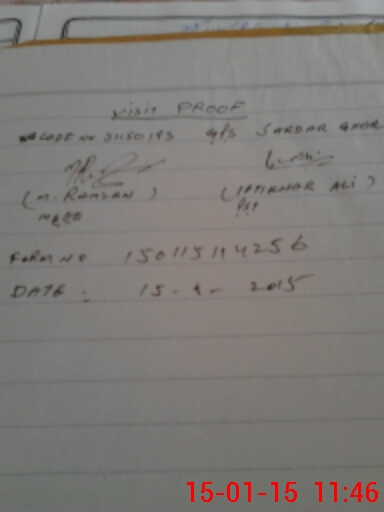 visit PROOF
CODE NO 31150193 GPS SARDAR GHAR
(M. RAMZAN) (IFTIKHAR ALI)
PST
FORM NO 150115114256
DATE: 15-1-2015
15-01-15 11:46